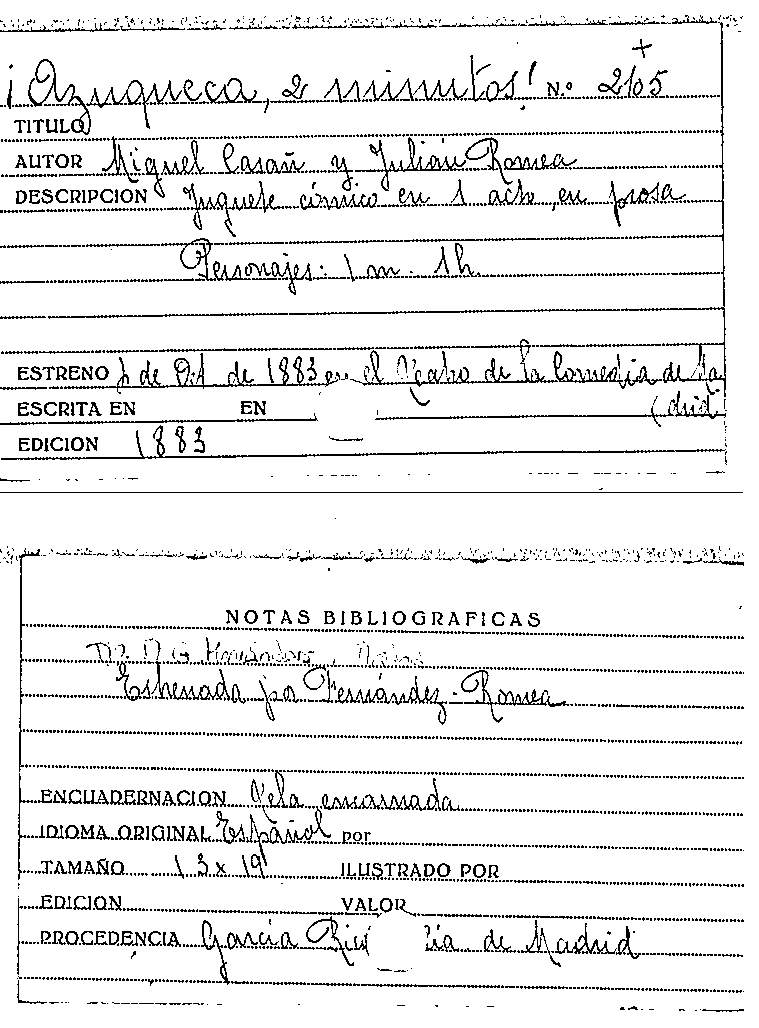 ¡Azuqueca, 2 minutos! N.º 2105
TITULO
AUTOR Miguel Casañ y Julián Romea
DESCRIPCION Juguete cómico en 1 acto, en prosa
Personajes: 1 m. 1 h.
ESTRENO de Oct de 1883 en el Teatro de la Comedia de Ma
(drid
ESCRITA EN EN
EDICION 1883
NOTAS BIBLIOGRAFICAS
Estrenada por Fernández-Romea
ENCUADERNACION Tela encarnada
IDIOMA ORIGINAL Español por
TAMAÑO 13 x 19 ILUSTRADO POR
EDICION VALOR
PROCEDENCIA García Rico de Madrid